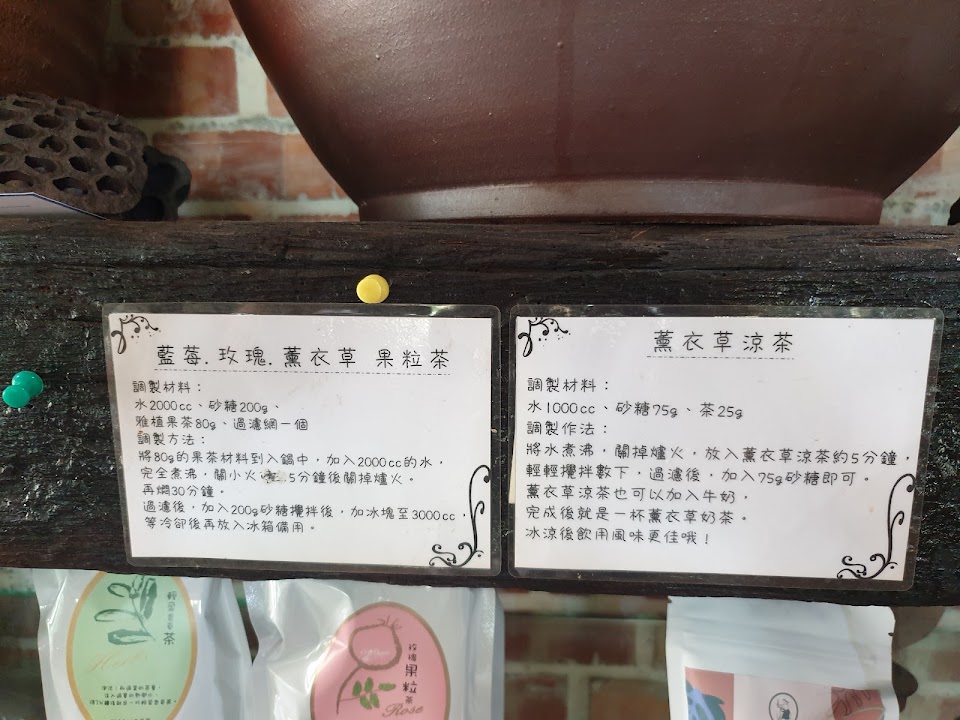 藍莓.玫瑰.薰衣草 果粒茶
調製材料：
水2000cc、砂糖200g、
雅植果茶80g、過濾網一個
調製方法：
將80g的果茶材料到入鍋中，加入2000cc的水，
完全煮沸，關小火 5分鐘後關掉爐火。
再燜30分鐘。
過濾後，加入200g砂糖攪拌後，加冰塊至3000cc，
等冷卻後再放入冰箱備用。
薰衣草涼茶
調製材料：
水1000cc、砂糖75g、茶25g
調製作法：
將水煮沸，關掉爐火，放入薰衣草涼茶約5分鐘，
輕輕攪拌數下，過濾後，加入75g砂糖即可。
薰衣草涼茶也可以加入牛奶，
完成後就是一杯薰衣草奶茶。
冰涼後飲用風味更佳哦！
茶
玫瑰
果粒
茶
Rose